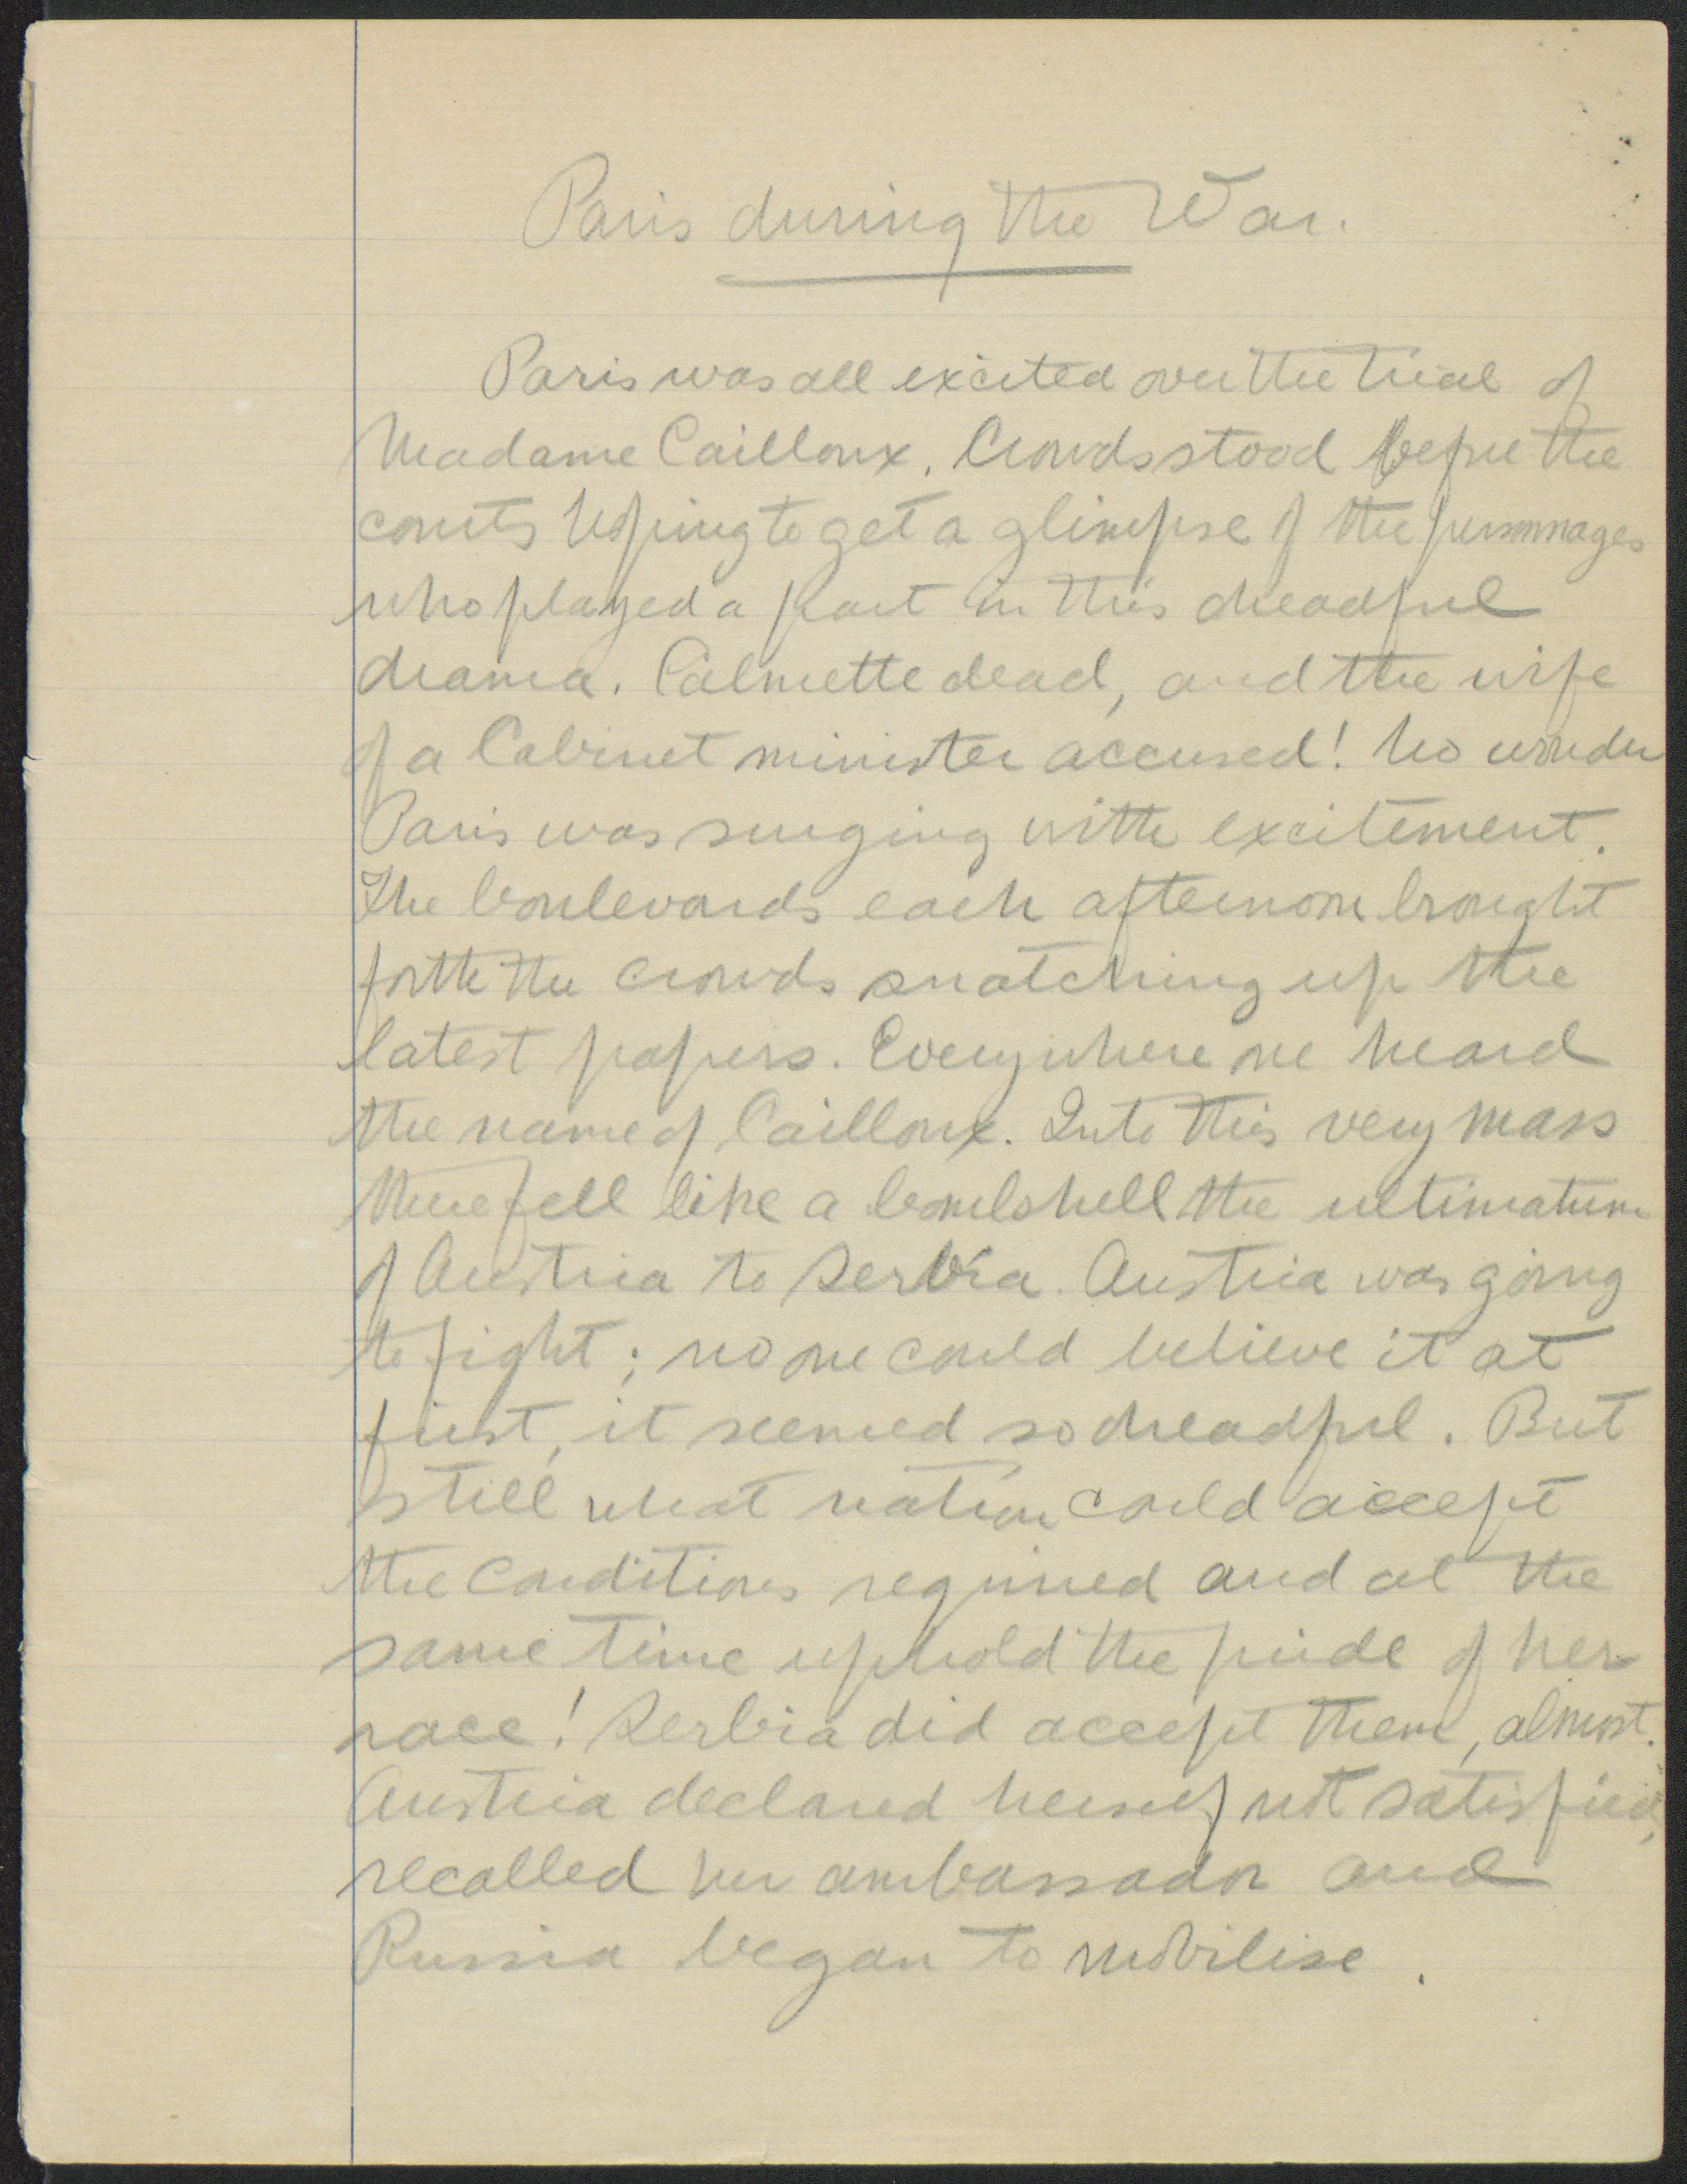 Paris during the War.
Paris was all excited over the trial of
Madame Cailloux. Crowds stood before the
courts hoping to get a glimpse of the personnages
who played a part in this dreadful
drama. Calmette dead, and the wife
of a Cabinet minister accused! No wonder
Paris was surging with excitement.
The boulevards each afternoon brought
forth the crowds snatching up the
latest papers. Everywhere one heard
the name of Cailloux. Into this very mass
there fell like a bombshell the ultimatum
of Austria to Serbia. Austria was going
to fight; no one could believe it at
first, it seemed so dreadful. But
still what nation could accept
the conditions required and at the
same time uphold the pride of her
race! Serbia did accept them, almost.
Austria declared herself not satisfied,
recalled her ambassador and
Russia began to mobilise.